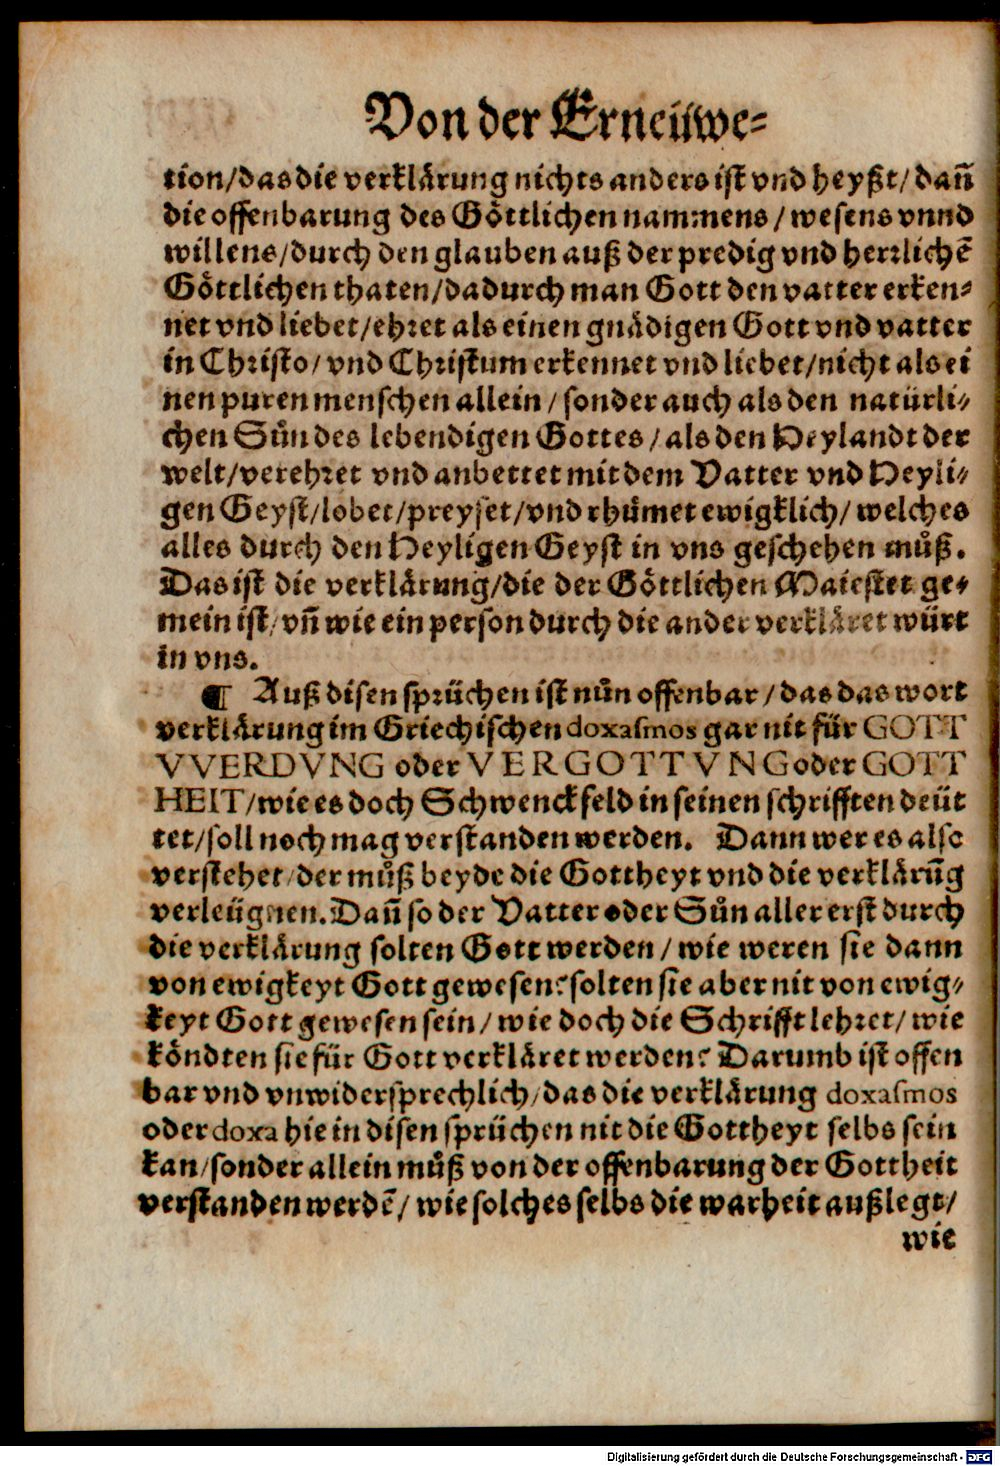 Von der Erneüwe⸗
tion/das die verklärung nichts anders ist vnd heyßt/dañ
die offenbarung des Göttlichen nammens/wesens vnnd
willens/durch den glauben auß der predig vnd herrlichē
Göttlichen thaten/dadurch man Gott den vatter erken⸗
net vnd liebet/ehret als einen gnädigen Gott vnd vatter
in Christo/vnd Christum erkennet vnd liebet/nicht als ei
nen puren menschen allein/sonder auch als den natürli⸗
chen Sůn des lebendigen Gottes/als den Heylandt der
welt/verehret vnd anbettet mit dem Vatter vnd Heyli⸗
gen Geyst/lobet/preyset/vnd rhůmet ewigklich/welches
alles durch den Heyligen Geyst in vns geschehen můß.
Das ist die verklärung/die der Göttlichen Maiestet ge⸗
mein ist/vñ wie ein person durch die ander verkläret würt
in vns.
¶ Auß disen sprüchen ist nůn offenbar/das das wort
verklärung im Griechischen doxasmos gar nit für GOTT
VVERDVNG oder VERGOTTVNG oder GOTT
HEIT/wie es doch Schwenckfeld in seinen schrifften deüt
tet/soll noch mag verstanden werden. Dann wer es also
verstehet/der můß beyde die Gottheyt vnd die verklärūg
verleügnen. Dañ so der Vatter oder Sůn aller erst durch
die verklärung solten Gott werden/wie weren sie dann
von ewigkeyt Gott gewesen? solten sie aber nit von ewig⸗
keyt Gott gewesen sein/wie doch die Schrifft lehret/wie
köndten sie für Gott verkläret werden? Darumb ist offen
bar vnd vnwidersprechlich/das die verklärung doxasmos
oder doxa hie in disen sprüchen nit die Gottheyt selbs sein
kan/sonder allein můß von der offenbarung der Gottheit
verstanden werdē/wie solches selbs die warheit außlegt/
wie
Digitalisierung gefördert durch die Deutsche Forschungsgemeinschaft - DFG